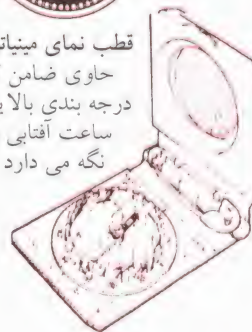 قطب نمای مینیاتو
حاوی ضامن
درجه بندی بالا
ساعت آفتابی
نگه می دارد